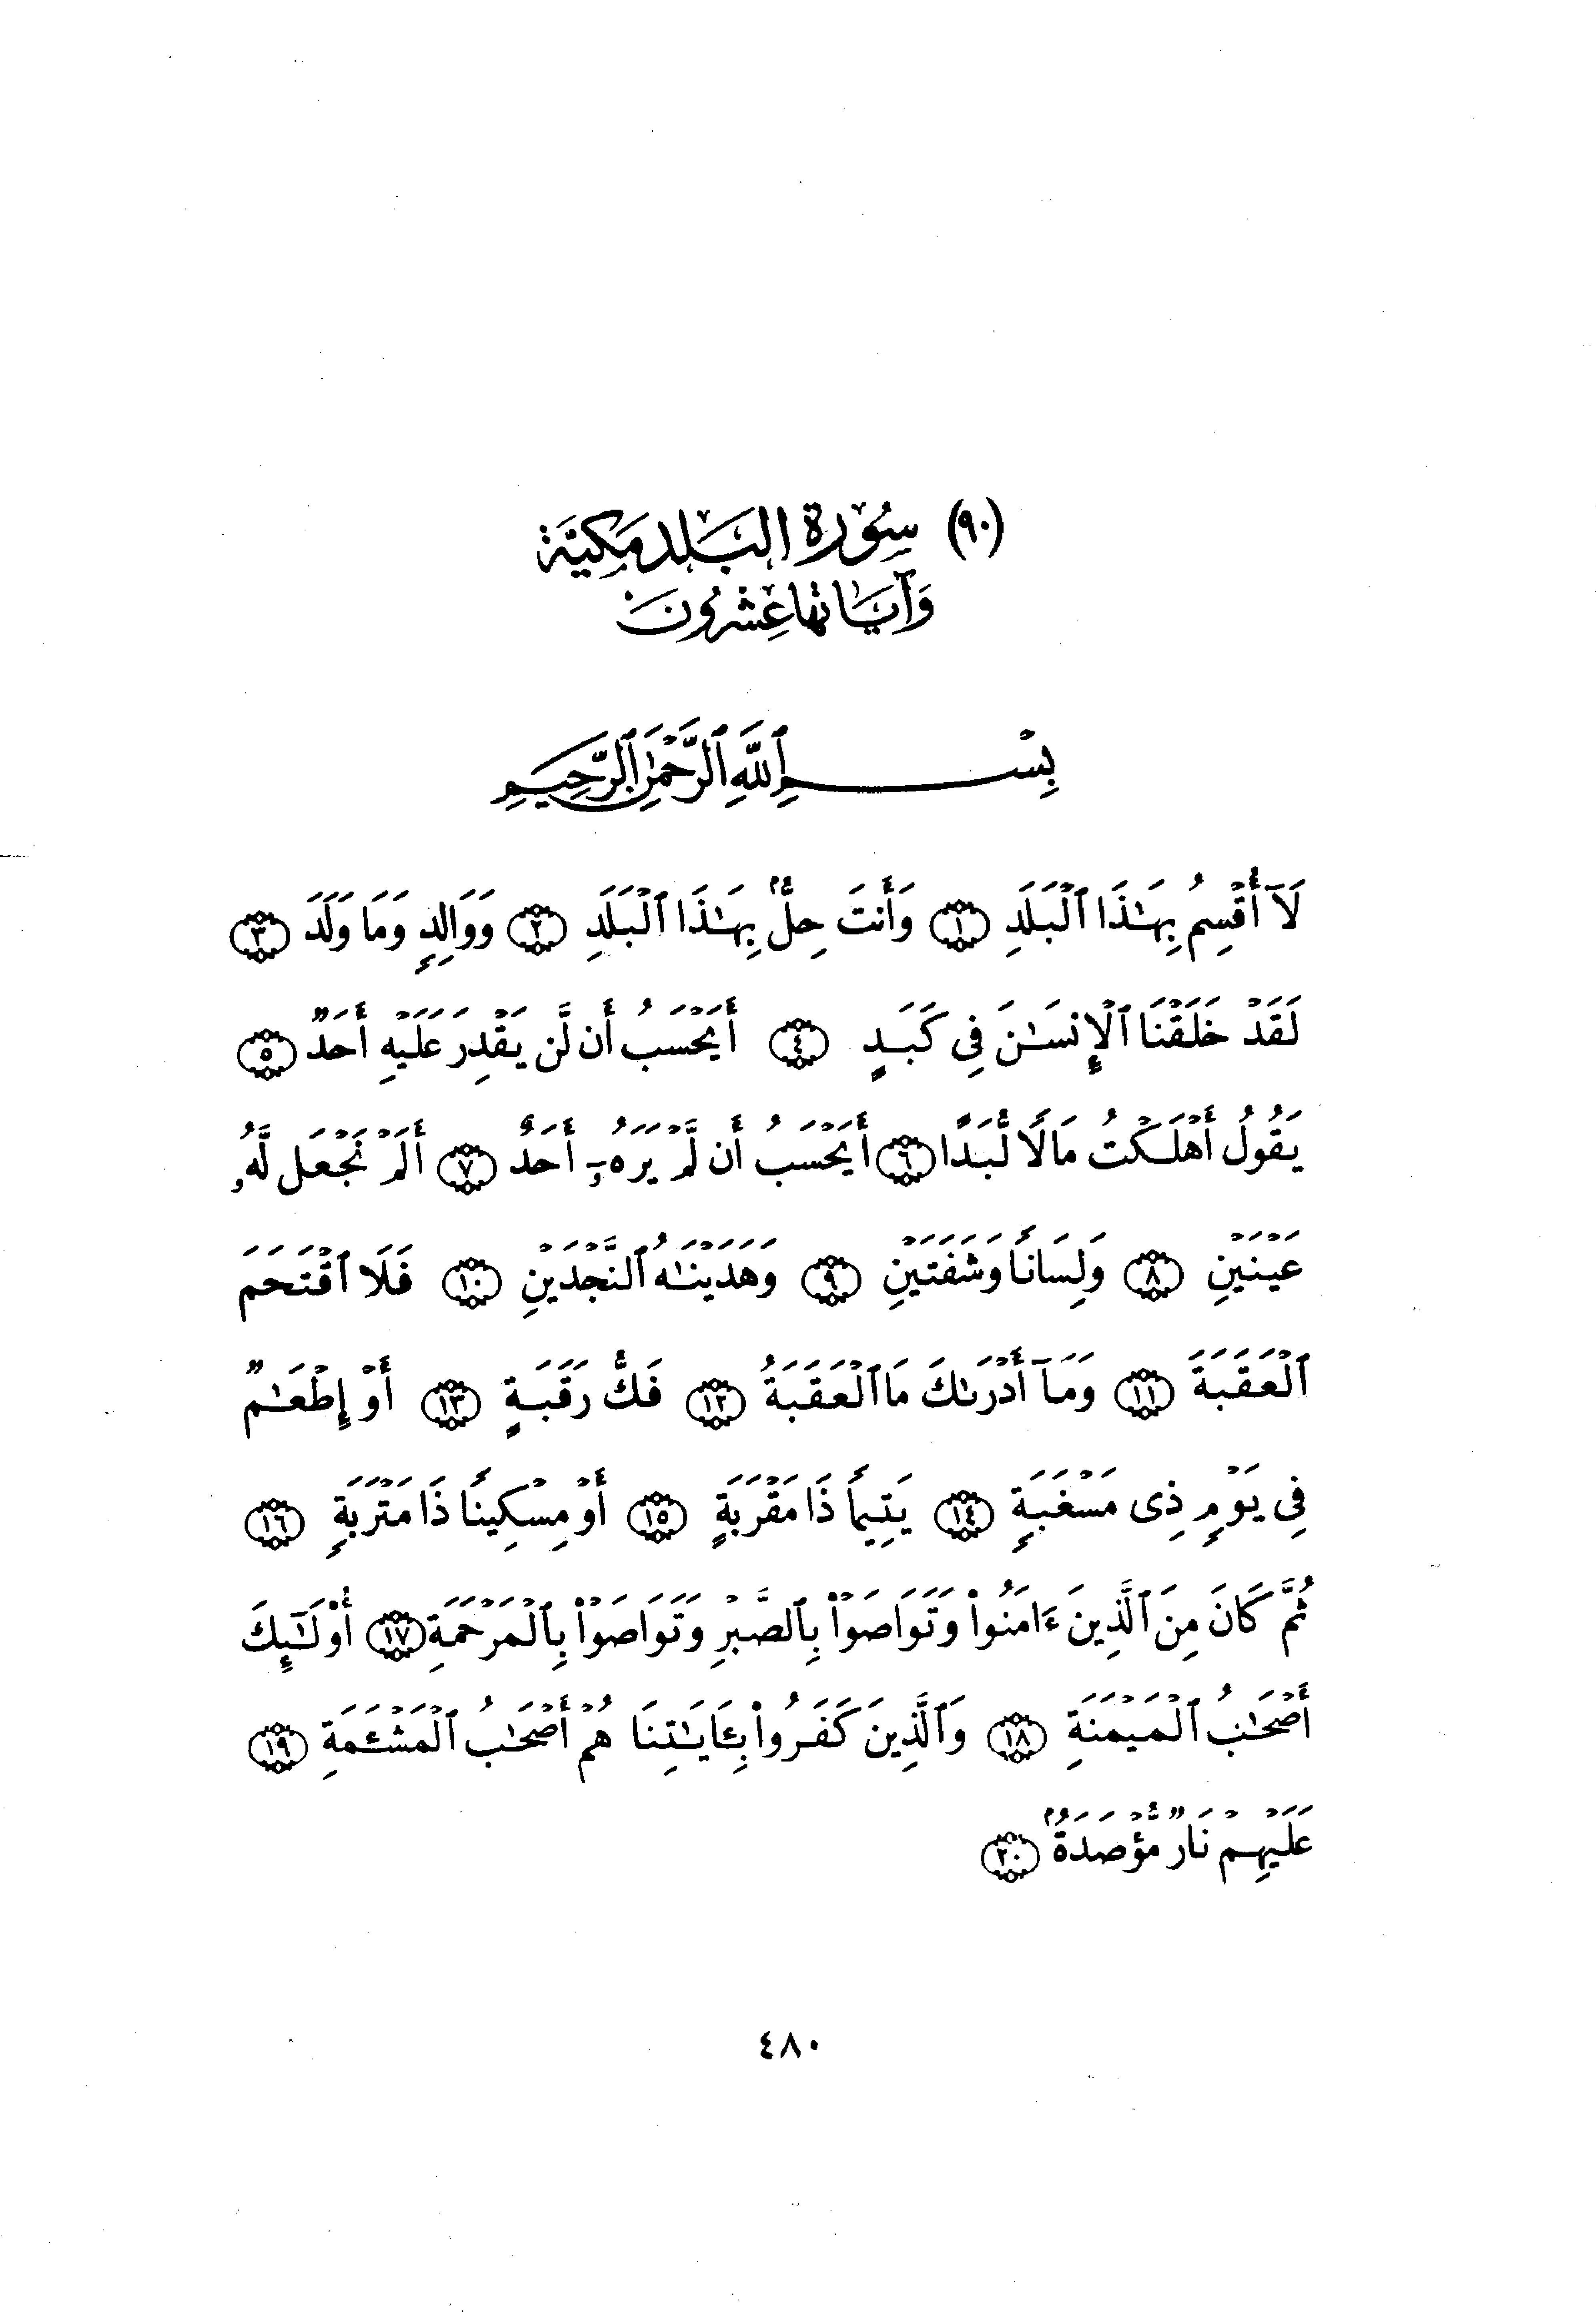 (٩٠) سُورَة البَلَد مَكيَّة
وَآيَاتهَا عِشْرُونَ
بِسْمِ ٱللَّهِ ٱلرَّحْمَٰنِ ٱلرَّحِيمِ
لَآ أُقْسِمُ بِهَـٰذَا ٱلْبَلَدِ ١ وَأَنتَ حِلٌّۢ بِهَـٰذَا ٱلْبَلَدِ ٢ وَوَالِدٍ وَمَا وَلَدَ ٣
لَقَدْ خَلَقْنَا ٱلْإِنسَـٰنَ فِى كَبَدٍ ٤ أَيَحْسَبُ أَن لَّن يَقْدِرَ عَلَيْهِ أَحَدٌ ٥
يَقُولُ أَهْلَكْتُ مَالًا لُّبَدًا ٦ أَيَحْسَبُ أَن لَّمْ يَرَهُۥٓ أَحَدٌ ٧ أَلَمْ نَجْعَل لَّهُۥ
عَيْنَيْنِ ٨ وَلِسَانًا وَشَفَتَيْنِ ٩ وَهَدَيْنَـٰهُ ٱلنَّجْدَيْنِ ١٠ فَلَا ٱقْتَحَمَ
ٱلْعَقَبَةَ ١١ وَمَآ أَدْرَىٰكَ مَا ٱلْعَقَبَةُ ١٢ فَكُّ رَقَبَةٍ ١٣ أَوْ إِطْعَـٰمٌ
فِى يَوْمٍ ذِى مَسْغَبَةٍ ١٤ يَتِيمًا ذَا مَقْرَبَةٍ ١٥ أَوْ مِسْكِينًا ذَا مَتْرَبَةٍ ١٦
ثُمَّ كَانَ مِنَ ٱلَّذِينَ ءَامَنُوا۟ وَتَوَاصَوْا۟ بِٱلصَّبْرِ وَتَوَاصَوْا۟ بِٱلْمَرْحَمَةِ ١٧ أُو۟لَـٰٓئِكَ
أَصْحَـٰبُ ٱلْمَيْمَنَةِ ١٨ وَٱلَّذِينَ كَفَرُوا۟ بِـَٔايَـٰتِنَا هُمْ أَصْحَـٰبُ ٱلْمَشْـَٔمَةِ ١٩
عَلَيْهِمْ نَارٌ مُّؤْصَدَةٌۢ ٢٠
٤٨٠